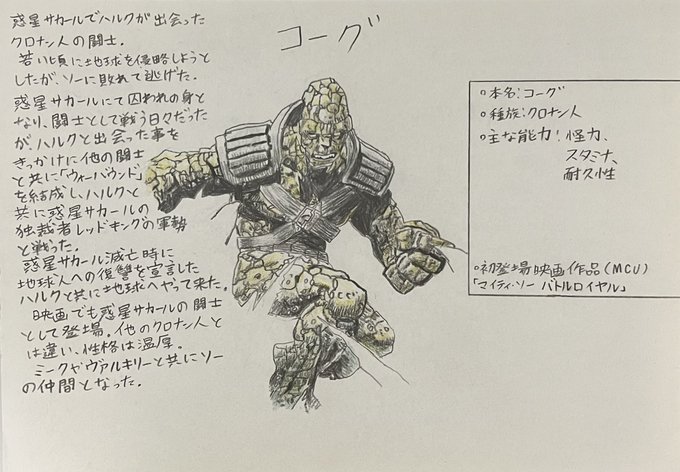 コーグ
惑星サカールでハルクが出会った
クロナン人の闘士.
若い頃に地球を侵略しようと
したが、ソーに敗れて逃げた.
惑星サカールにて囚われの身と
なり、闘士として戦う日々だった
が、ハルクと出会った事を
きっかけに他の闘士
と共に「ウォーバウンド」
を結成し、ハルクと
共に惑星サカールの
独裁者レッドキングの軍勢
と戦った.
惑星サカール滅亡時に
地球人への復讐を宣言した
ハルクと共に地球へやって来た.
映画でも惑星サカールの闘士
として登場. 他のクロナン人と
は違い、性格は温厚.
ミークやヴァルキリーと共にソー
の仲間となった.
○本名:コーグ
○種族:クロナン人
○主な能力:怪力、
スタミナ、
耐久性
○初登場映画作品(MCU)
「マイティ・ソー バトルロイヤル」